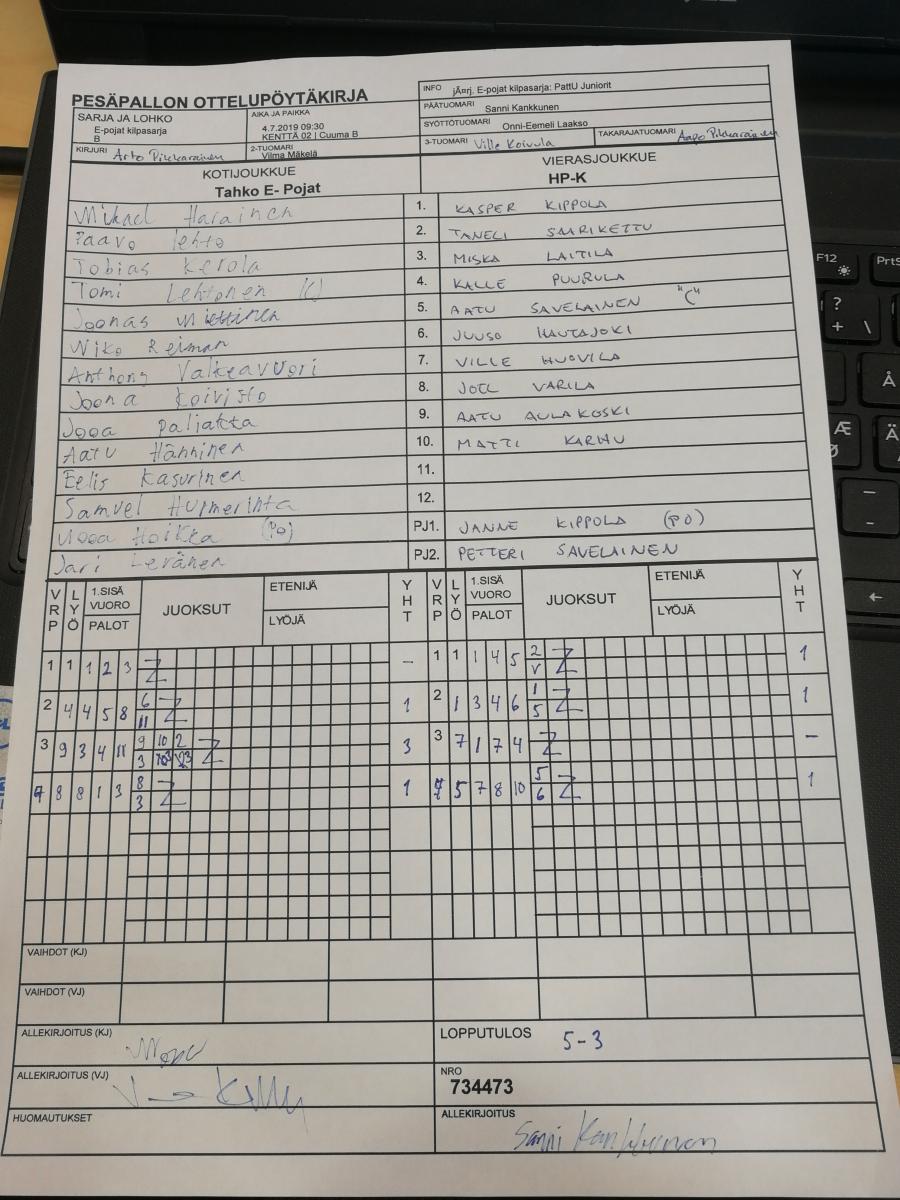 PESÄPALLON OTTELUPÖYTÄKIRJA
SARJA JA LOHKO
E-pojat kilpasarja
B
AIKA JA PAIKKA
4.7.2019 09:30
KENTTÄ 02 | Cuuma B
KIRJURI Arto Pikkarainen
2-TUOMARI
Vilma Mäkelä
INFO jÃ¤rj. E-pojat kilpasarja: PattU Juniorit
PÄÄTUOMARI Sanni Kankkunen
SYÖTTÖTUOMARI Onni-Eemeli Laakso
3-TUOMARI Ville Koivula
TAKARAJATUOMARI Aapo Pikkarainen
KOTIJOUKKUE
Tahko E- Pojat
VIERASJOUKKUE
HP-K
Mikael Harainen 1. KASPER KIPPOLA
Paavo lehto 2. TANELI SAARIKETTU
Tobias Kerola 3. MISKA LAITILA
Tomi Lehtonen (C) 4. KALLE PUURULA
Joonas Miettinen 5. AATU SAVELAINEN "C"
Niko Reiman 6. JUUSO HAUTAJOKI
Anthony Valkeavuori 7. VILLE HUOVILA
Joona Koivisto 8. JOEL VARILA
Jooa paljakka 9. AATU AULAKOSKI
Aatu Hänninen 10. MATTI KARHU
Eelis Kasurinen 11.
Samuel Hurmerinta 12.
Hoikka (PO) PJ1. JANNE KIPPOLA (PO)
Jari Leränen PJ2. PETTERI SAVELAINEN
VRP LYÖ 1.SISÄ VUORO PALOT JUOKSUT ETENIJÄ LYÖJÄ YHT VRP LYÖ 1.SISÄ VUORO PALOT JUOKSUT ETENIJÄ LYÖJÄ YHT
1 1 1 2 3 – 1 1 1 4 5 2 V 1
2 4 4 5 8 6 11 1 2 1 3 4 6 1 5 1
3 9 3 4 11 9 10 2 3 3 3 7 1 7 4 –
8 8 1 3 8 3 1 5 7 8 10 5 6 1
VAIHDOT (KJ)
VAIHDOT (VJ)
ALLEKIRJOITUS (KJ)
LOPPUTULOS 5-3
ALLEKIRJOITUS (VJ)
NRO
734473
HUOMAUTUKSET
ALLEKIRJOITUS
Sanni Kankkunen
F12
PrtS
?
+ \
Å
Æ
Ø
Ä